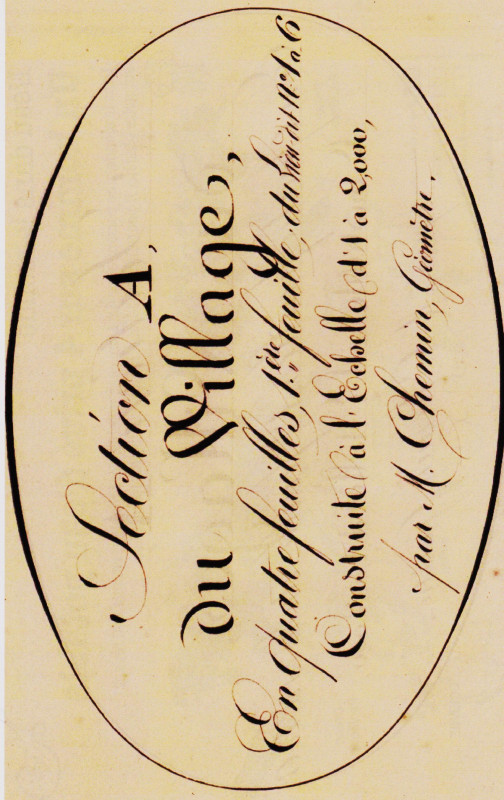 Section A,
du Village,
En quatre feuilles, 1.ère feuille, du
Construite à l'Echelle d'1 à 2,000,
par M. Chemin, Géomètre.